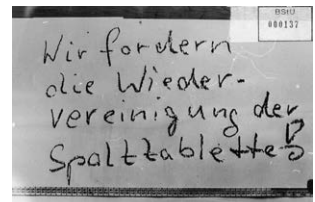 BStU
000137
Wir fordern
die Wieder-
vereinigung der
Spalttablette!